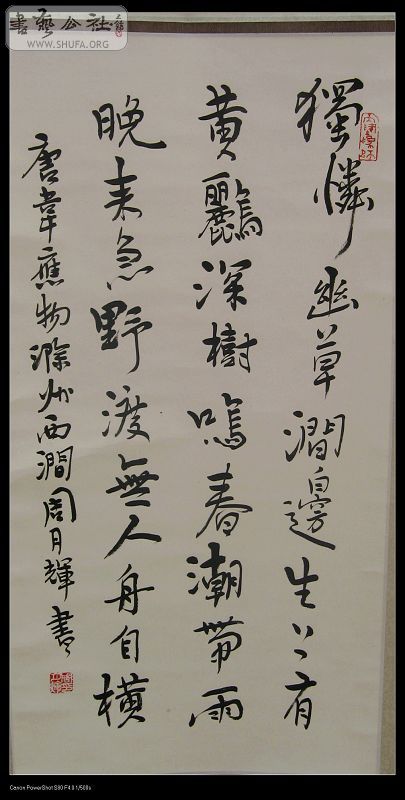 書藝公社
WWW.SHUFA.ORG
獨憐幽草澗邊生上有
黃鸝深樹鳴春潮帶雨
晚來急野渡無人舟自橫
唐韋應物滁州西澗周月輝書
Canon PowerShot S80 F4.0 1/500s